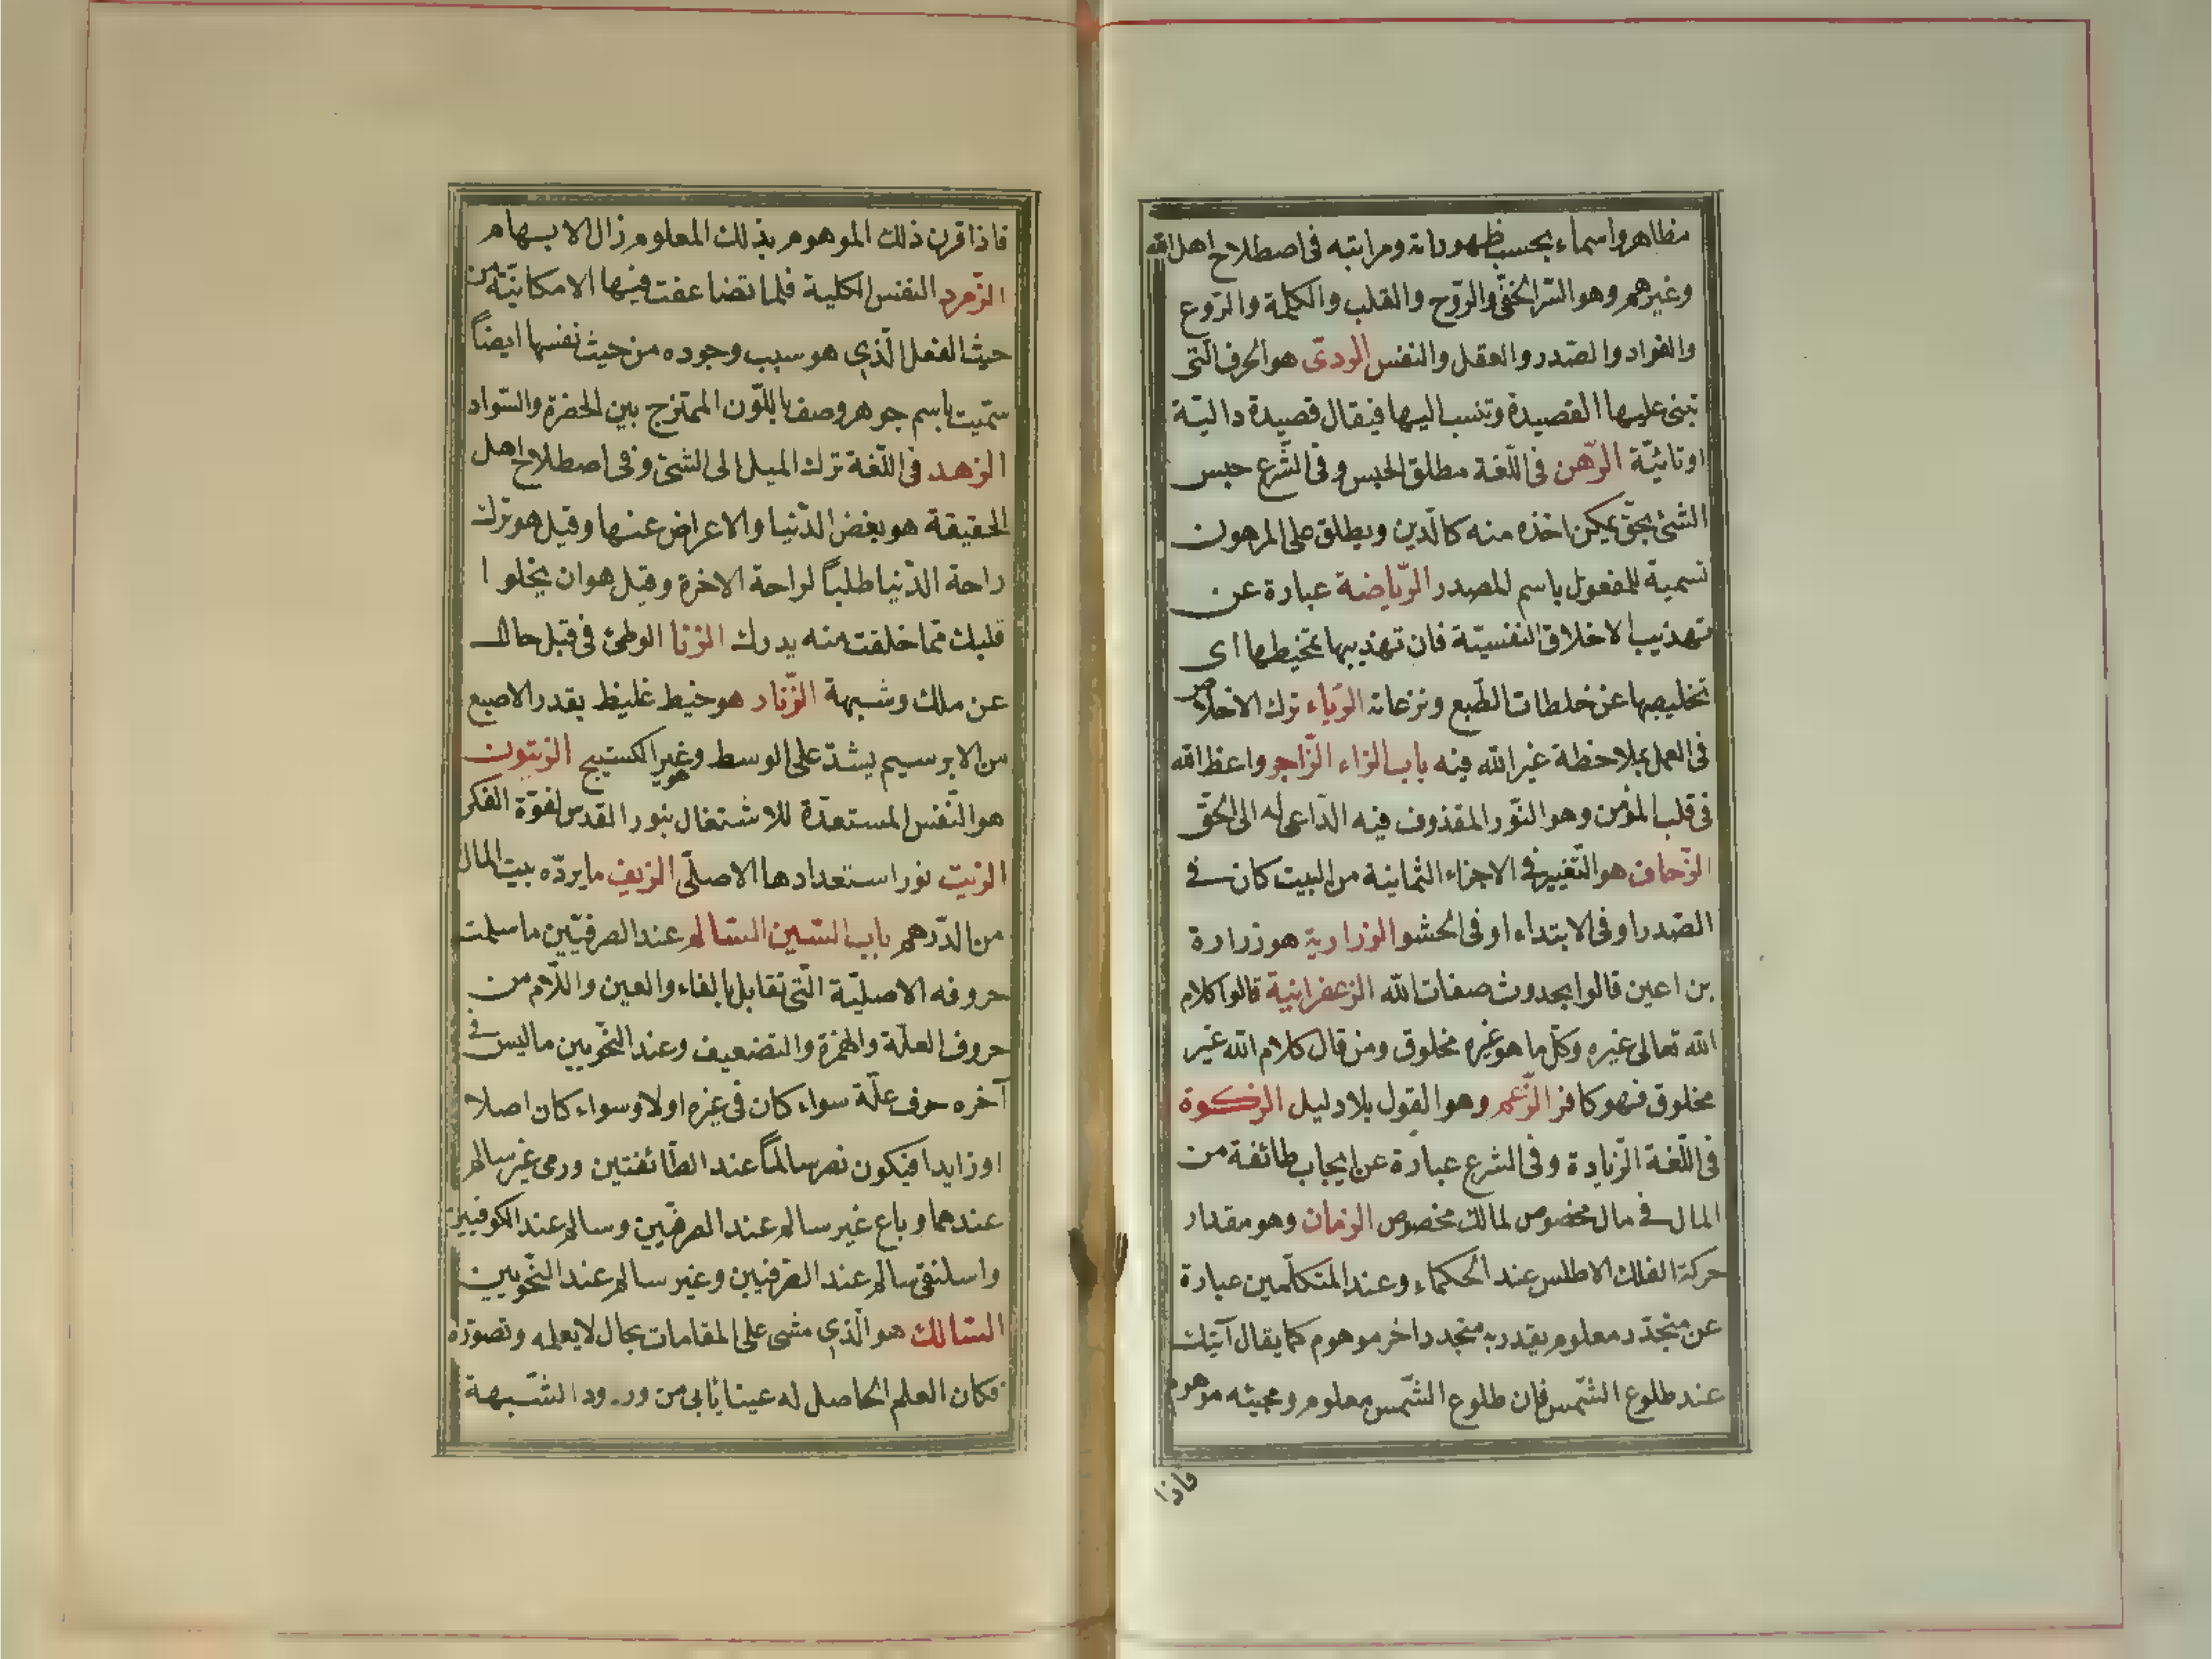 مظاهر واسماء بحسب ظهوراته ومراتبه فى اصطلاح اهل الله
وغيرهم وهو السّر الخفىّ والرّوح والقلب والكلمة والرّوع
والفواد والصّدر والعقل والنفس الروىّ هو الحرف الّتى
تبنى عليها القصيدة وتنسب اليها فيقال قصيدة داليّة
اوتائيّة الرّهن فى اللّغة مطلق الحبس وفى الشّرع حبس
الشئ بحقّ يمكن اخذه منه كالدّين ويطلق على المرهون
تسمية للمفعول باسم المصدر الرّياضة عبارة عن
تهذيب الاخلاق النفسيّة فان تهذيبها تمخيطها اى
تخليصها عن خلطات الطّبع ونزعاته الرّياء ترك الاخلاص
فى العمل بملاحظة غير الله فيه باب الزاء الزّاجر واعظ الله
فى قلب المؤمن وهو النّور المقذوف فيه الدّاعى له الى الحقّ
الزّحاف هو التّغيير فى الاجزاء الثمانية من البيت كان فى
الصّدر او فى الابتداء او فى الحشو الزرارية هو زرارة
بن اعين قالوا بحدوث صفات الله الزعفرانية قالوا كلام
الله تعالى غيره وكلّ ما هو غيره مخلوق ومن قال كلام الله غير
مخلوق فهو كافر الزّعم وهو القول بلا دليل الزكوة
فى اللّغة الزّيادة وفى الشرع عبارة عن ايجاب طائفة من
المال فى مال مخصوص لمالك مخصوص الزمان وهو مقدار
حركة الفلك الاطلس عند الحكماء وعند المتكلّمين عبارة
عن متجدّد معلوم يقدر به متجدد اخر موهوم كما يقال آتيك
عند طلوع الشّمس فان طلوع الشّمس معلوم ومجيئه موهوم
فاذا
فاذا قرن ذلك الموهوم بذلك المعلوم زال الابهام
الزّمرد النفس الكلية فلما تضاعفت فيها الامكانيّة من
حيث الفعل الّذى هو سبب وجوده من حيث نفسها ايضاً
سّميت باسم جوهر وصف باللّون الممتزج بين الخضرة والسّواد
الزهد فى اللّغة ترك الميل الى الشئ وفى اصطلاح اهل
الحقيقة هو بغض الدّنيا والاعراض عنها وقيل هو ترك
راحة الدّنيا طلباً لراحة الاخرة وقيل هو ان يخلوا
قلبك ممّا خلقت منه يدك الزنا الوطئ فى قبل خال
عن ملك وشبهة الزّنار هو خيط غليظ بقدر الاصبع
من الابرسيم يشدّ على الوسط وهو غير الكستيج الزيتون
هو النّفس المستعدّة للاشتغال بنور القدس لقوّة الفكر
الزيت نور استعدادها الاصلّى الزيف ما يردّه بيت المال
من الدّرهم باب السّين السّالم عند الصرفيّين ما سلمت
حروفه الاصليّة الّتى تقابل بالفاء والعين واللّام من
حروف العلّة والهمزة والتضعيف وعند النحّويين ما ليس فى
آخره حرف علّة سواء كان فى غيره او لا وسواء كان اصلا
او زايدا فيكون نصر سالماً عند الطّائفتين ورمى غير سالم
عندهما وباع غير سالم عند الصرفّيين وسالم عند الكوفيين
واسلنقى سالم عند الصرفيين وغير سالم عند النحّويين
السّالك هو الّذى مشى على المقامات بحال لا يعلمه وتصوّره
فكان العلم الحاصل له عينا يابى من ورود الشّبهة